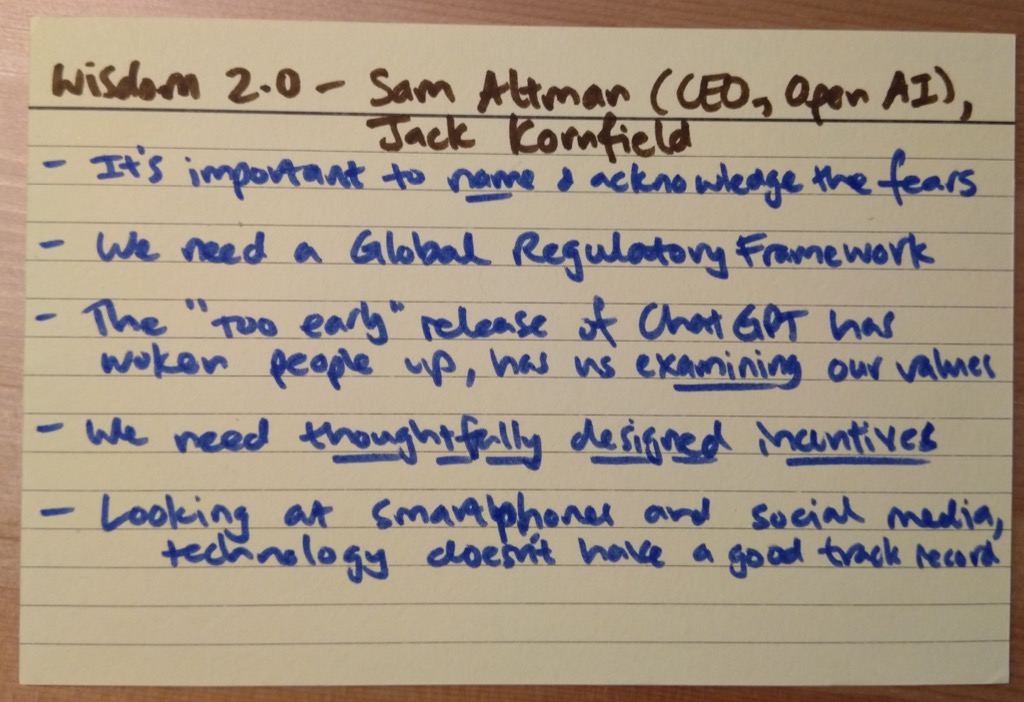 Wisdom 2.0 - Sam Altman (CEO, Open AI),
Jack Kornfield
- It's important to name & acknowledge the fears
- We need a Global Regulatory Framework
- The "too early" release of ChatGPT has
woken people up, has us examining our values
- We need thoughtfully designed incentives
- Looking at smartphones and social media,
technology doesn't have a good track record